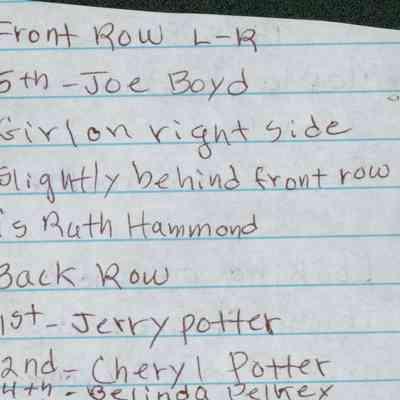 Front Row L-R
5th - Joe Boyd
Girl on right side
slightly behind front row
is Ruth Hammond
Back Row
1st - Jerry Potter
2nd - Cheryl Potter
4th - Belinda Pelkey